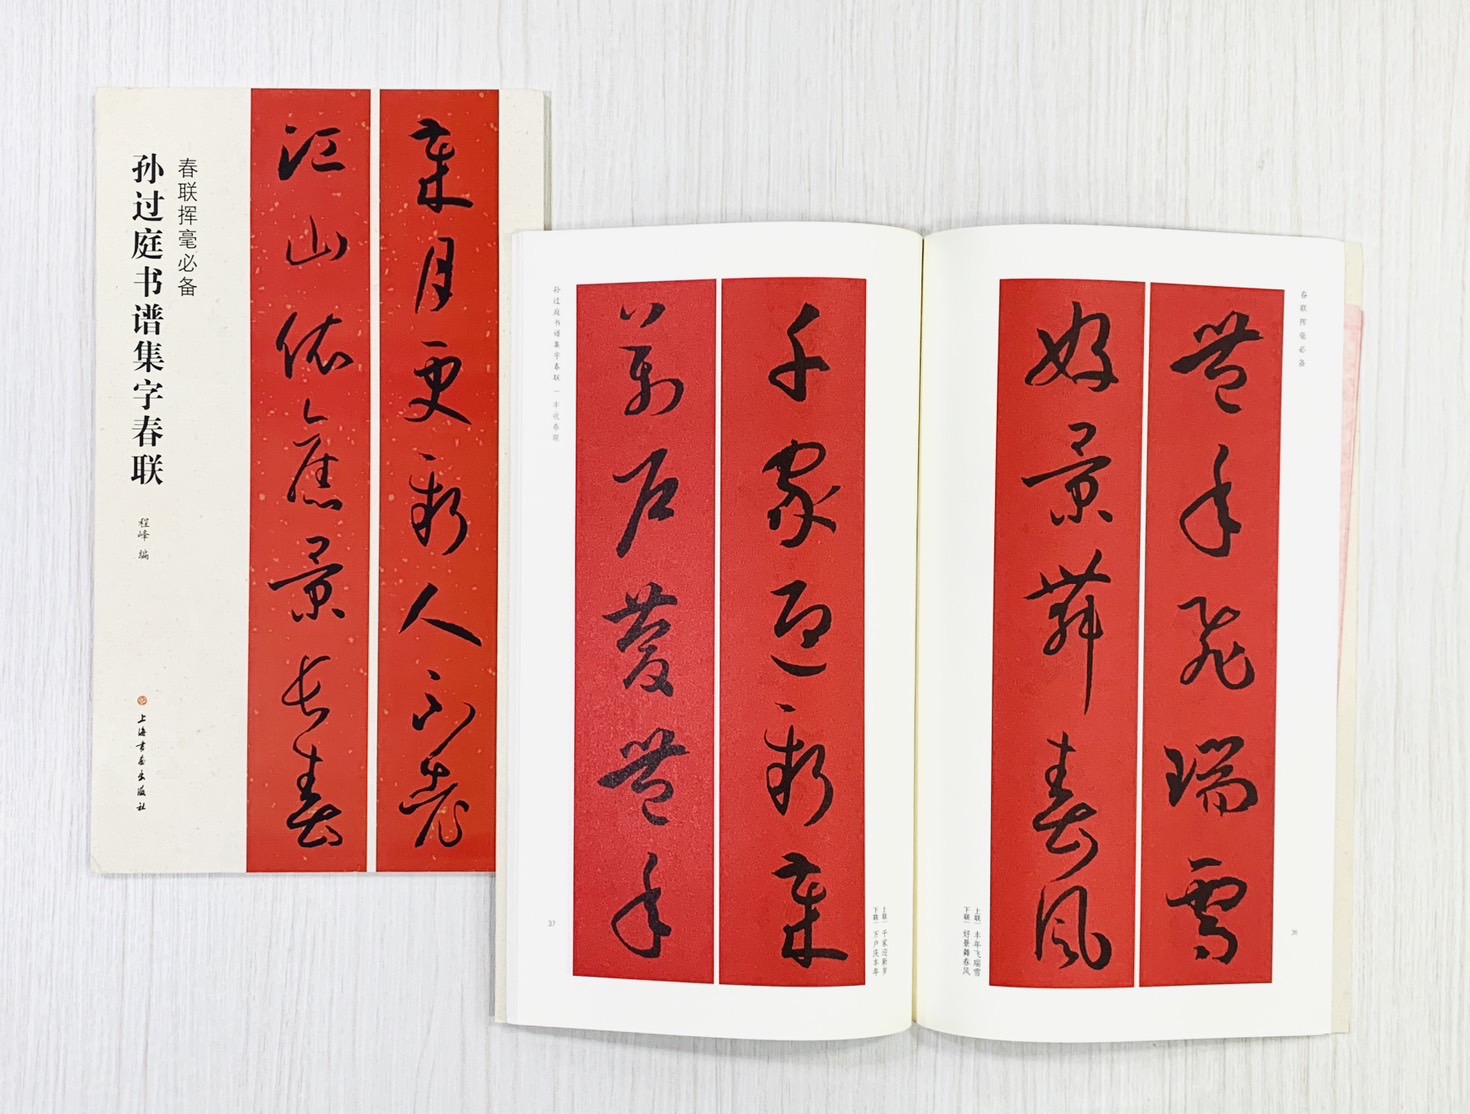 春联挥毫必备
孙过庭书谱集字春联
程峰 编
上海书画出版社
歲月更新人不老
江山依舊景長春
孙过庭书谱集字春联 — 丰收春联
千家迎新歲
萬戶慶豐年
上联 | 千家迎新岁
下联 | 万户庆丰年
37
春联挥毫必备
豐年飛瑞雪
好景舞春風
上联 | 丰年飞瑞雪
下联 | 好景舞春风
36